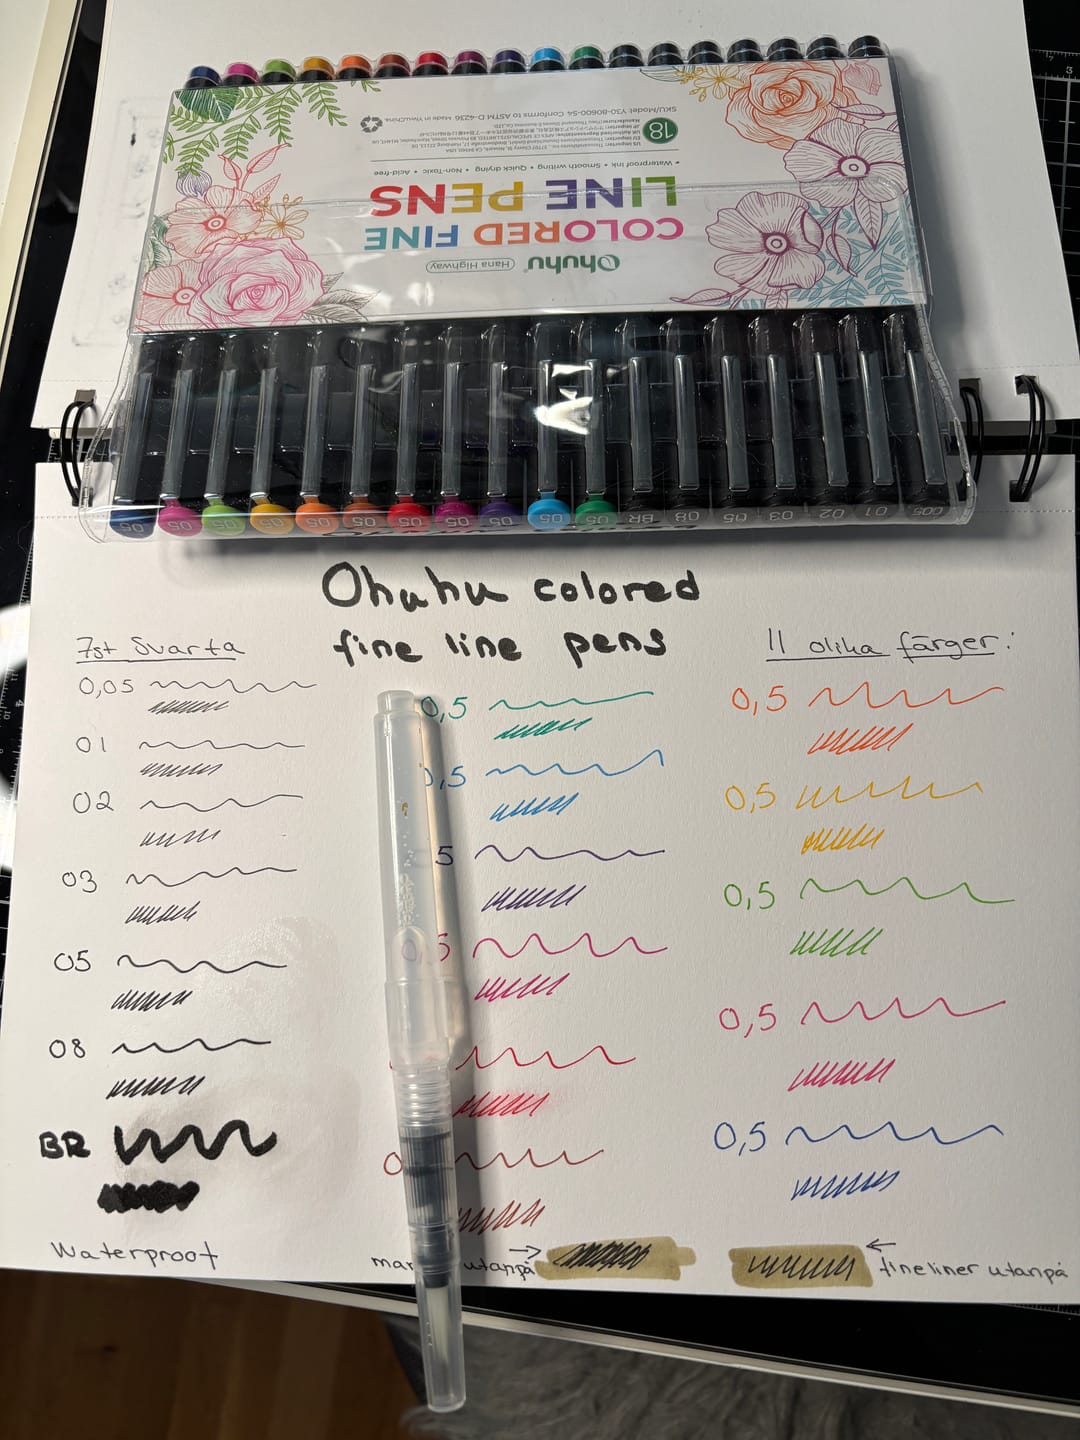 Ohuhu Hana Highway
COLORED FINE
LINE PENS
• Waterproof ink • Smooth writing • Quick drying • Non-Toxic • Acid-free
18
SKU/Model: Y30-80600-54 Conforms to ASTM D-4236 Made in
05 05 05 05 05 05 05 05 05 05 05 BR 08 05 03 02 01 005
Ohuhu colored
fine line pens
7st Svarta
0,05
01
02
03
05
08
BR
Waterproof
0,5
,5
5
0,5
0
mar utanpå →
11 olika färger:
0,5
0,5
0,5
0,5
0,5
← fineliner utanpå